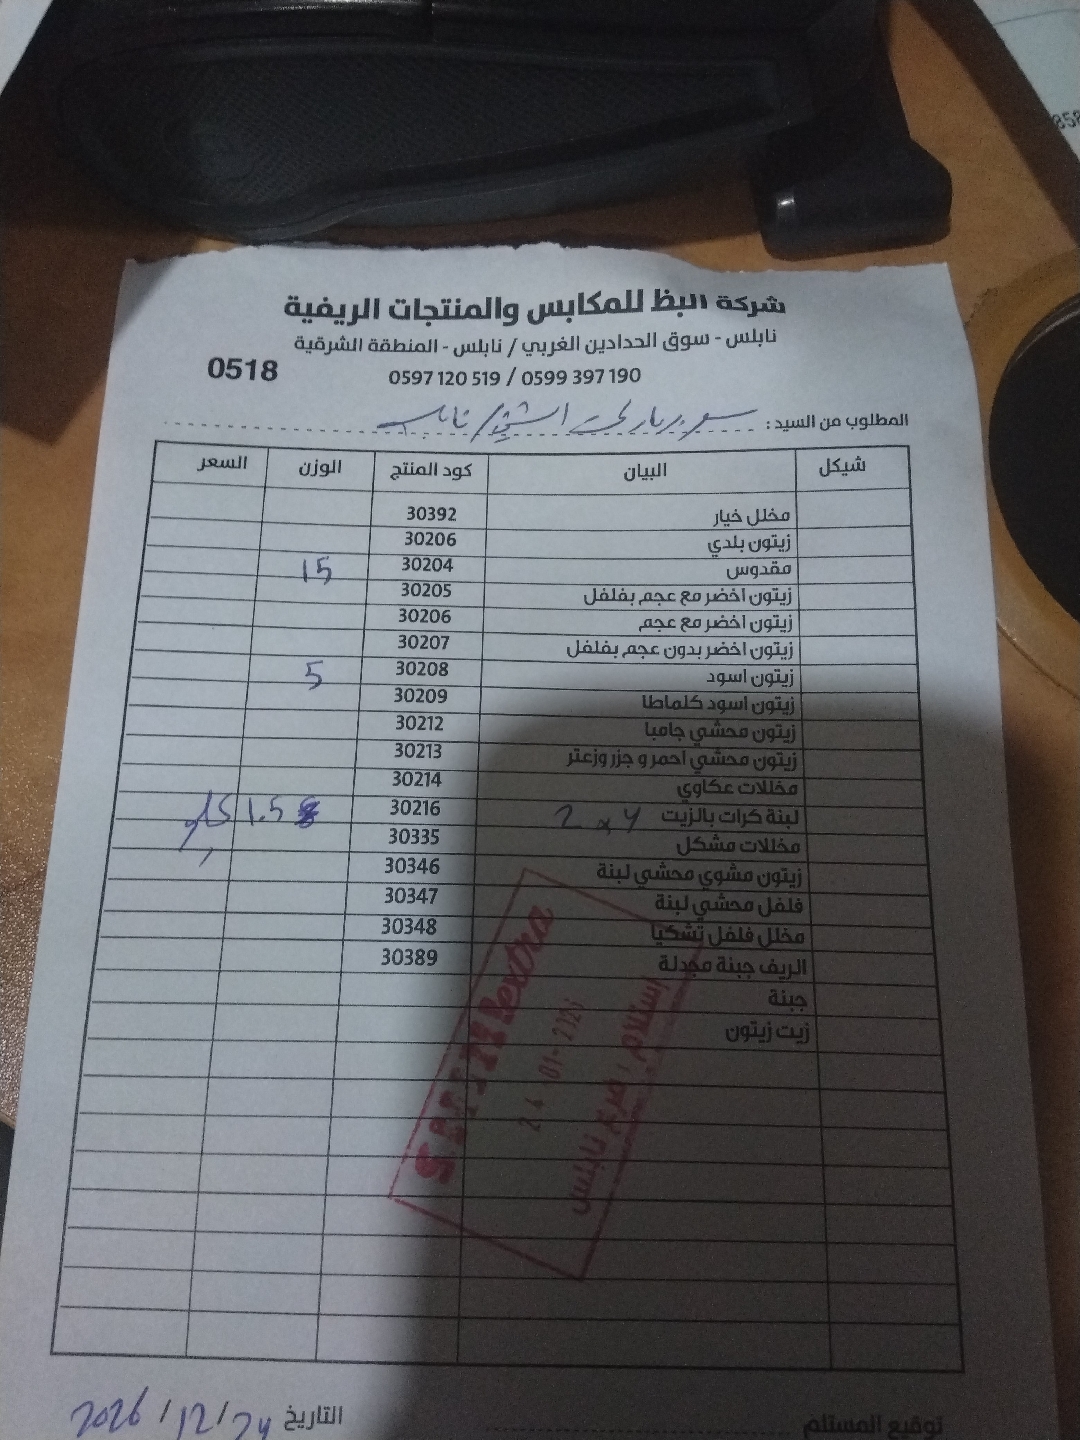 شركة البظ للمكابس والمنتجات الريفية
نابلس - سوق الحدادين الغربي / نابلس - المنطقة الشرقية
0597 120 519 / 0599 397 190
0518
المطلوب من السيد :
شيكل البيان كود المنتج الوزن السعر
مخلل خيار 30392
زيتون بلدي 30206
مقدوس 30204 15
زيتون اخضر مع عجم بفلفل 30205
زيتون اخضر مع عجم 30206
زيتون اخضر بدون عجم بفلفل 30207
زيتون اسود 30208 5
زيتون اسود كلماطا 30209
زيتون محشي جامبا 30212
زيتون محشي احمر و جزر وزعتر 30213
مخللات عكاوي 30214
لبنة كرات بالزيت 30216 1.5
مخللات مشكل 30335
زيتون مشوي محشي لبنة 30346
فلفل محشي لبنة 30347
مخلل فلفل تشكيا 30348
الريف جبنة مجدلة 30389
جبنة
زيت زيتون
extra
إستلام
نابلس
توقيع المستلم
التاريخ 24/12/2026